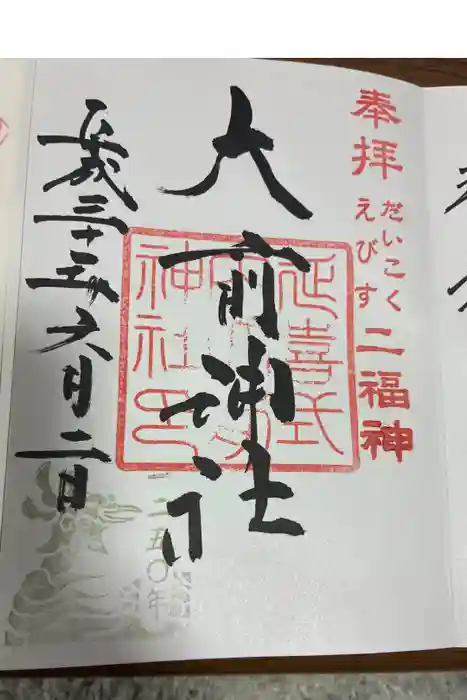 奉拝
だいこく
えびす
二福神
大前神社
延喜式
神社印
平成三十年六月二日
二五〇年